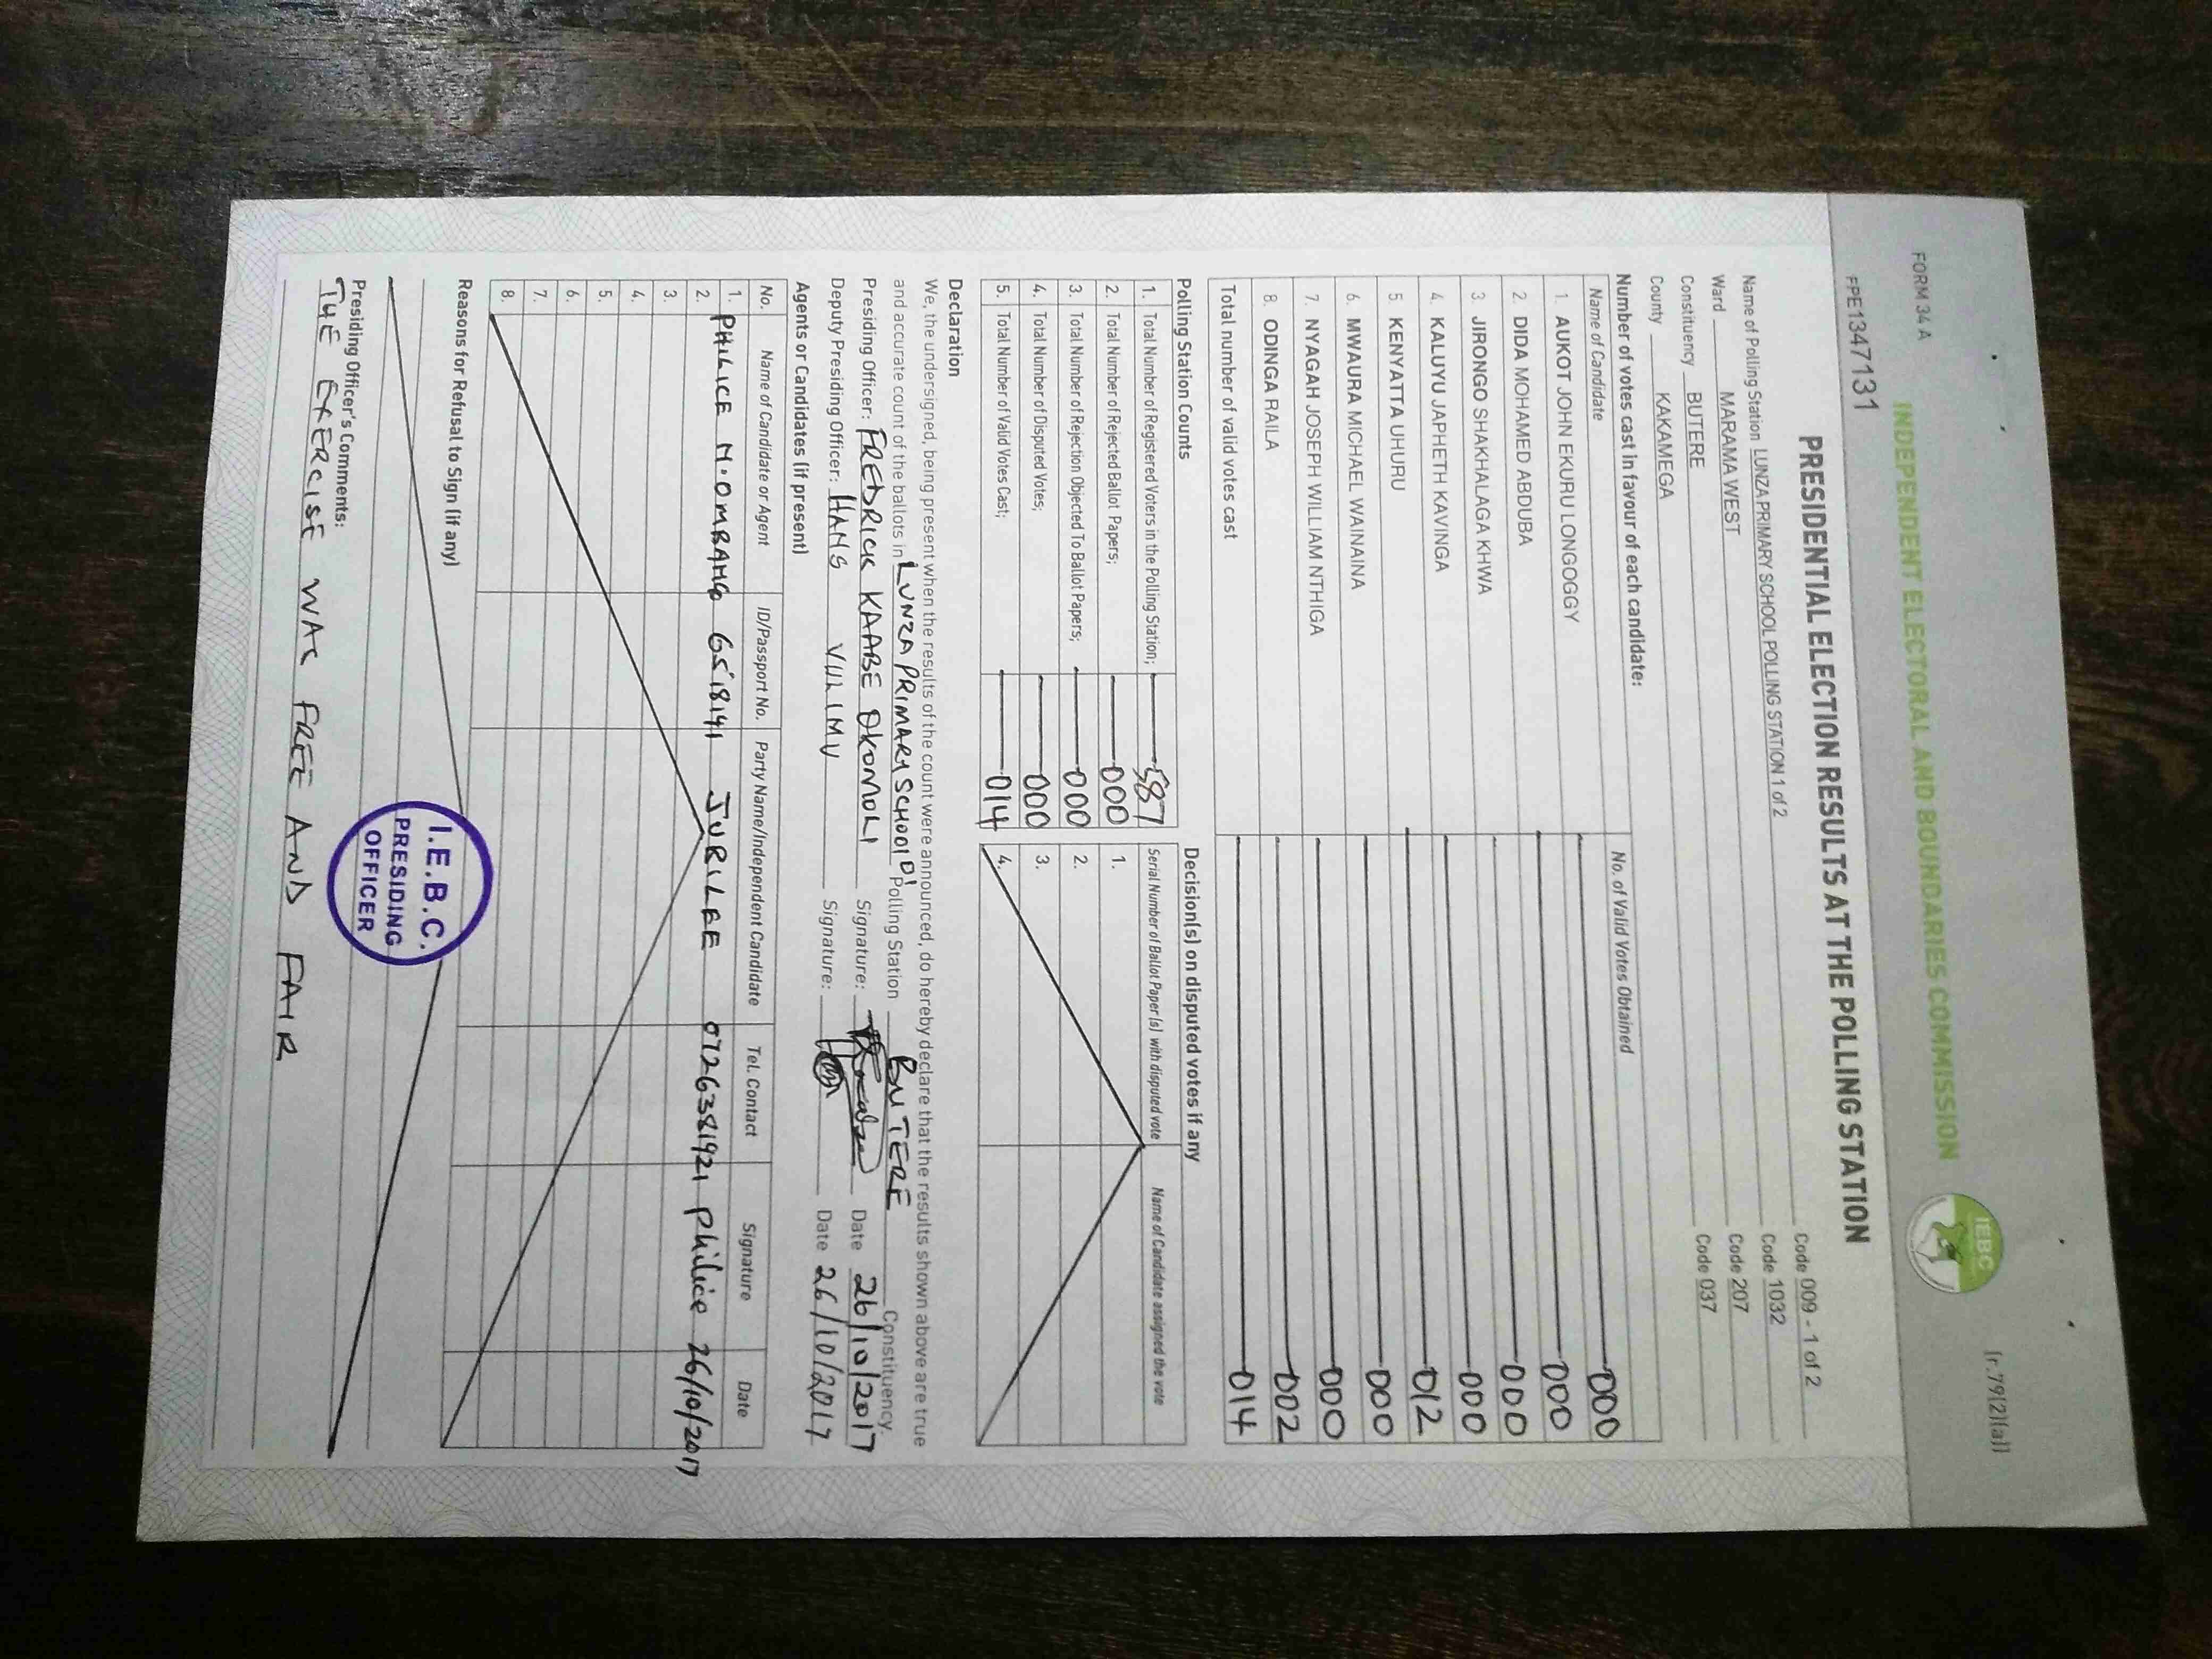 FORM 34 A
[r.79(2)(a)]
INDEPENDENT ELECTORAL AND BOUNDARIES COMMISSION
IEBC
FPE1347131
PRESIDENTIAL ELECTION RESULTS AT THE POLLING STATION
Name of Polling Station LUNZA PRIMARY SCHOOL POLLING STATION 1 of 2 Code 009 - 1 of 2
Ward MARAMA WEST Code 1032
Constituency BUTERE Code 207
County KAKAMEGA Code 037
Number of votes cast in favour of each candidate:
Name of Candidate No. of Valid Votes Obtained
1. AUKOT JOHN EKURU LONGOGGY 000
2. DIDA MOHAMED ABDUBA 000
3. JIRONGO SHAKHALAGA KHWA 000
4. KALUYU JAPHETH KAVINGA 000
5. KENYATTA UHURU 012
6. MWAURA MICHAEL WAINAINA 000
7. NYAGAH JOSEPH WILLIAM NTHIGA 000
8. ODINGA RAILA 002
Total number of valid votes cast 014
Polling Station Counts
1. Total Number of Registered Voters in the Polling Station; 587
2. Total Number of Rejected Ballot Papers; 000
3. Total Number of Rejection Objected To Ballot Papers; 000
4. Total Number of Disputed Votes; 000
5. Total Number of Valid Votes Cast; 014
Decision(s) on disputed votes if any
Serial Number of Ballot Paper(s) with disputed vote Name of Candidate assigned the vote
1.
2.
3.
4.
Declaration
We, the undersigned, being present when the results of the count were announced, do hereby declare that the results shown above are true
and accurate count of the ballots in LUNZA PRIMARY SCHOOL 01 Polling Station BUTERE Constituency.
Presiding Officer: FREDRICK KAABE OKOMOLI Signature: Date 26/10/2017
Deputy Presiding Officer: HANS Signature: Date 26/10/2017
Agents or Candidates (if present)
No. Name of Candidate or Agent ID/Passport No. Party Name/Independent Candidate Tel. Contact Signature Date
1. PHILICE 6518141 JUBILEE 0726381921 Philice 26/10/2017
2.
3.
4.
5.
6.
7.
8.
Reasons for Refusal to Sign (if any)
I.E.B.C.
PRESIDING
OFFICER
Presiding Officer's Comments:
THE EXERCISE WAS FREE AND FAIR